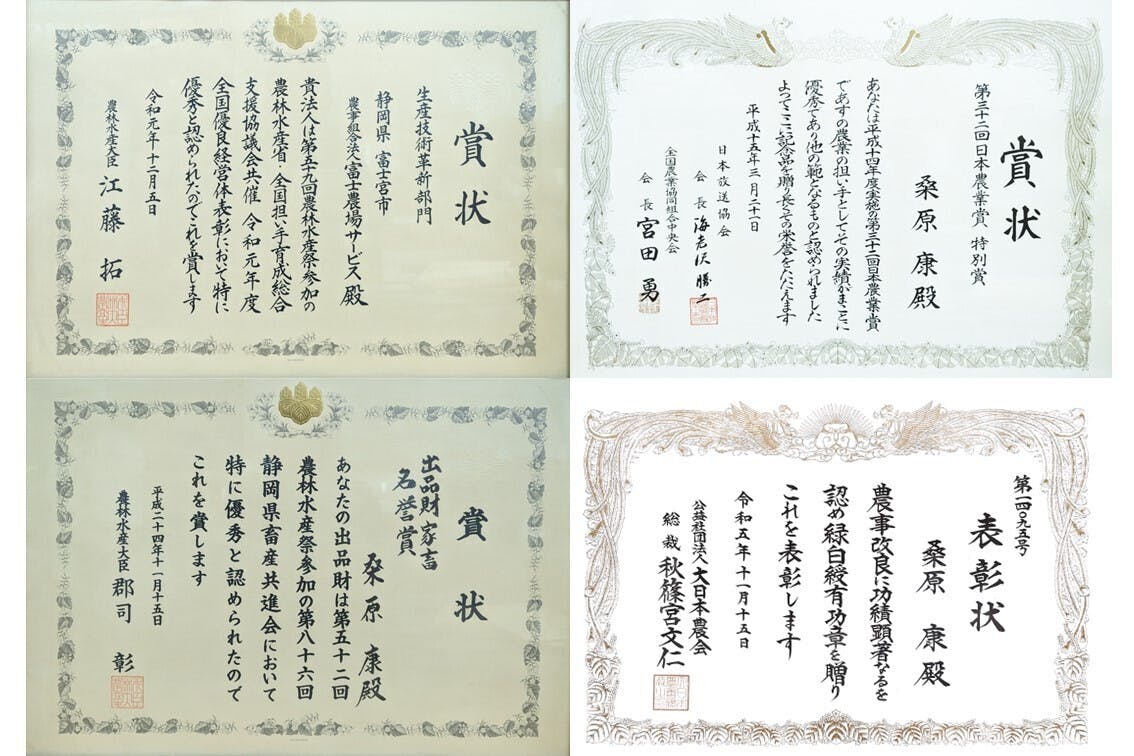 賞状
生産技術革新部門
静岡県 富士宮市
農事組合法人富士農場サービス殿
貴法人は第五十九回農林水産祭参加の
農林水産省・全国担い手育成総合
支援協議会共催 令和元年度
全国優良経営体表彰において特に
優秀と認められたのでこれを賞します
令和元年十二月五日
農林水産大臣 江藤 拓
賞状
第三十二回日本農業賞 特別賞
桑原 康殿
あなたは平成十四年度実施の第三十二回日本農業賞
であすの農業の担い手としてその実績がまことに
優秀であり他の範となるものと認められました
よってここに記念品を贈り長くその栄誉をたたえます
平成十五年三月二十一日
日本放送協会
会長 海老沢勝二
全国農業協同組合中央会
会長 宮田勇
賞状
出品財家畜
名誉賞
桑原 康殿
あなたの出品財は第五十二回
農林水産祭参加の第八十六回
静岡県畜産共進会において
特に優秀と認められたので
これを賞します
平成二十四年十一月十五日
農林水産大臣 郡司 彰
第一四〇九五号
表彰状
桑原 康殿
農事改良に功績顕著なるを
認め緑白綬有功章を贈り
これを表彰します
令和五年十一月十五日
公益社団法人大日本農会
総裁 秋篠宮文仁